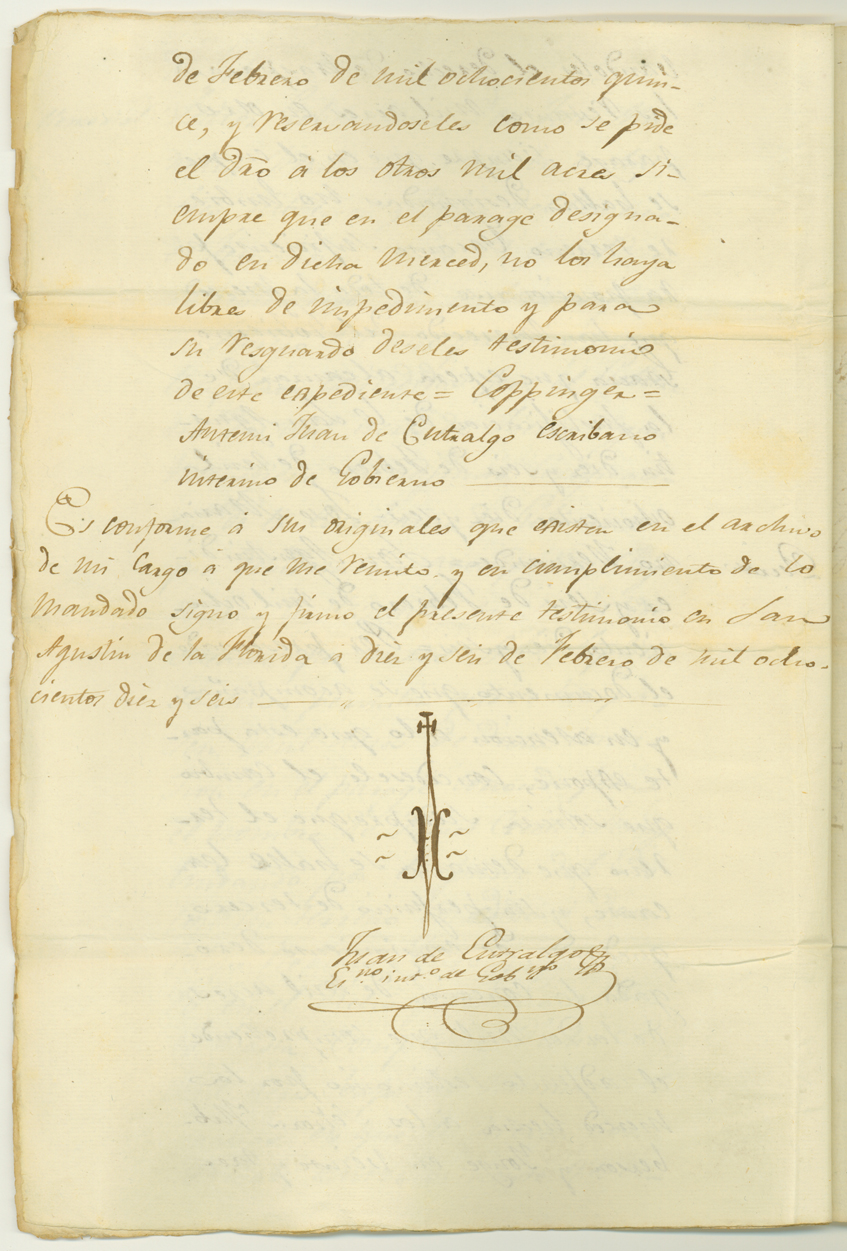 de Febrero de mil ochocientos quin-
ce, y reservandoseles como se pide
el dr̃o á los otros mil acres si-
empre que en el parage designa-
do en dicha Merced, no los haya
libres de impedimento y para
su resguardo deseles testimonio
de este expediente = Coppinger =
Antemi Juan de Entralgo escribano
interino de Gobierno
Es conforme á sus originales que existen en el archivo
de mi cargo á que me remito y en cumplimiento de lo
mandado signo y firmo el presente testimonio en San
Agustin de la Florida a diez y seis de Febrero de mil ocho-
cientos diez y seis
Juan de Entralgo
Es.no int.o de Gob.no